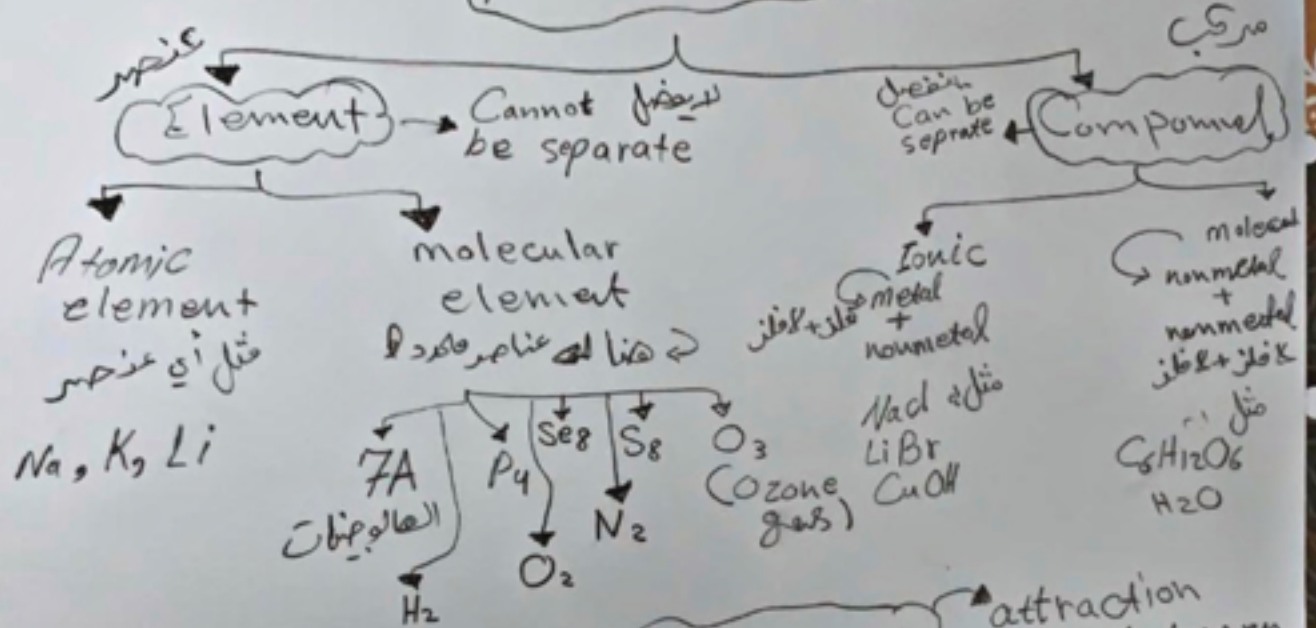 عنصر
مركب
Element
Cannot لا يفصل
be separate
Can be
seprate
Compomel
Atomic
element
مثل أي عنصر
Na, K, Li
molecular
element
هنا عناصر
7A
الهالوجينات
H2
P4
O2
Se8
N2
S8
O3
(Ozone
gas)
Ionic
metal
+
nonmetal
فلز + لافلز
مثل
LiBr
CuOH
nonmetal
+
nonmectal
لافلز + لافلز
مثل
C6H12O6
H2O
attraction